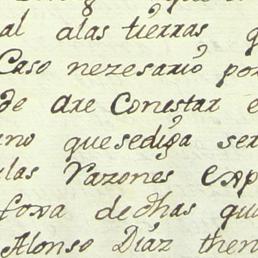 al alas tierras
Caso nezesario por
de are Conestar e
no quesediga ser
las Razones exp
foxa dedhas qua
Alonso Diaz then